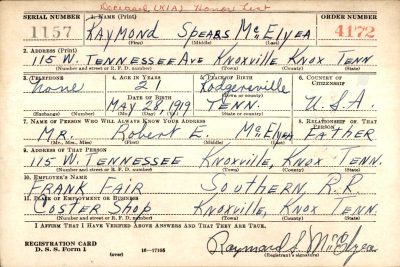 Deceased (KIA) Honor List
SERIAL NUMBER 1. NAME (Print) ORDER NUMBER
1157 RAYMOND SPEARS McELYEA 4172
(First) (Middle) (Last)
2. ADDRESS (Print)
115 W. TENNESSEE AVE KNOXVILLE KNOX TENN
(Number and street or R. F. D. number) (Town) (County) (State)
3. TELEPHONE 4. AGE IN YEARS 5. PLACE OF BIRTH 6. COUNTRY OF CITIZENSHIP
None 21 Rodgersville
DATE OF BIRTH (Town or county)
MAY 28, 1919 TENN. U.S.A.
(Exchange) (Number) (Mo.) (Day) (Yr.) (State or country)
7. NAME OF PERSON WHO WILL ALWAYS KNOW YOUR ADDRESS 8. RELATIONSHIP OF THAT PERSON
MR. Robert E. McElyea FATHER
(Mr., Mrs., Miss) (First) (Middle) (Last)
9. ADDRESS OF THAT PERSON
115 W. TENNESSEE KNOXVILLE, KNOX TENN.
(Number and street or R. F. D. number) (Town) (County) (State)
10. EMPLOYER'S NAME
FRANK FAIR SOUTHERN R.R
11. PLACE OF EMPLOYMENT OR BUSINESS
COSTER Shop KNOXVILLE, KNOX TENN.
(Number and street or R. F. D. number) (Town) (County) (State)
I AFFIRM THAT I HAVE VERIFIED ABOVE ANSWERS AND THAT THEY ARE TRUE.
REGISTRATION CARD
D. S. S. Form 1 (over) 16—17105 Raymond S. McElyea
(Registrant's signature)